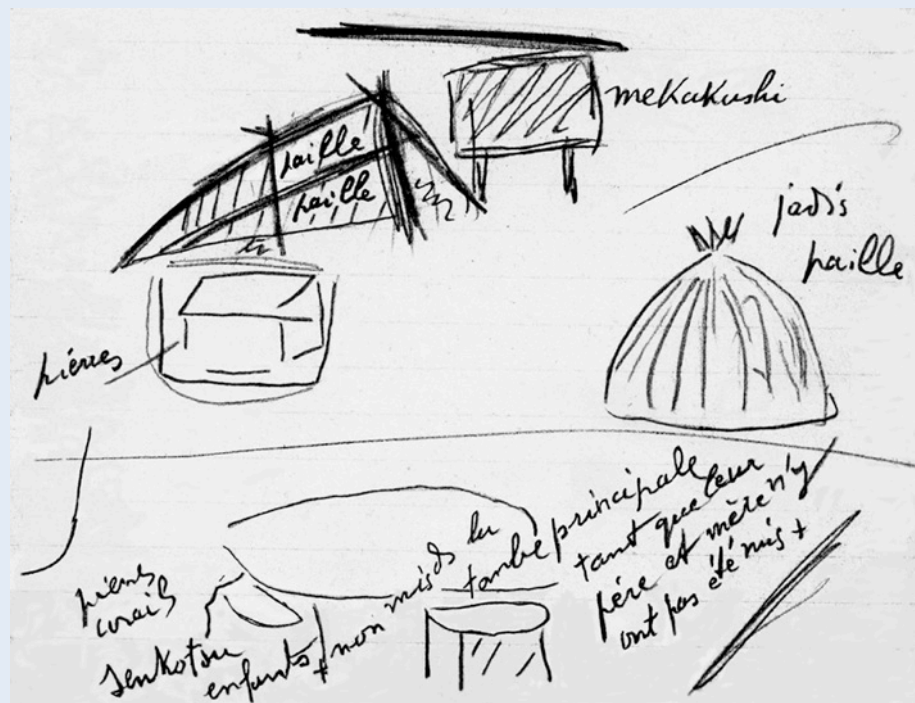 mekakushi
paille
paille
jadis
paille
pierres
pierres
corail
senkotsu
enfants + non mis ds la
tombe principale
tant que leur
père et mère n'y
ont pas été mis +